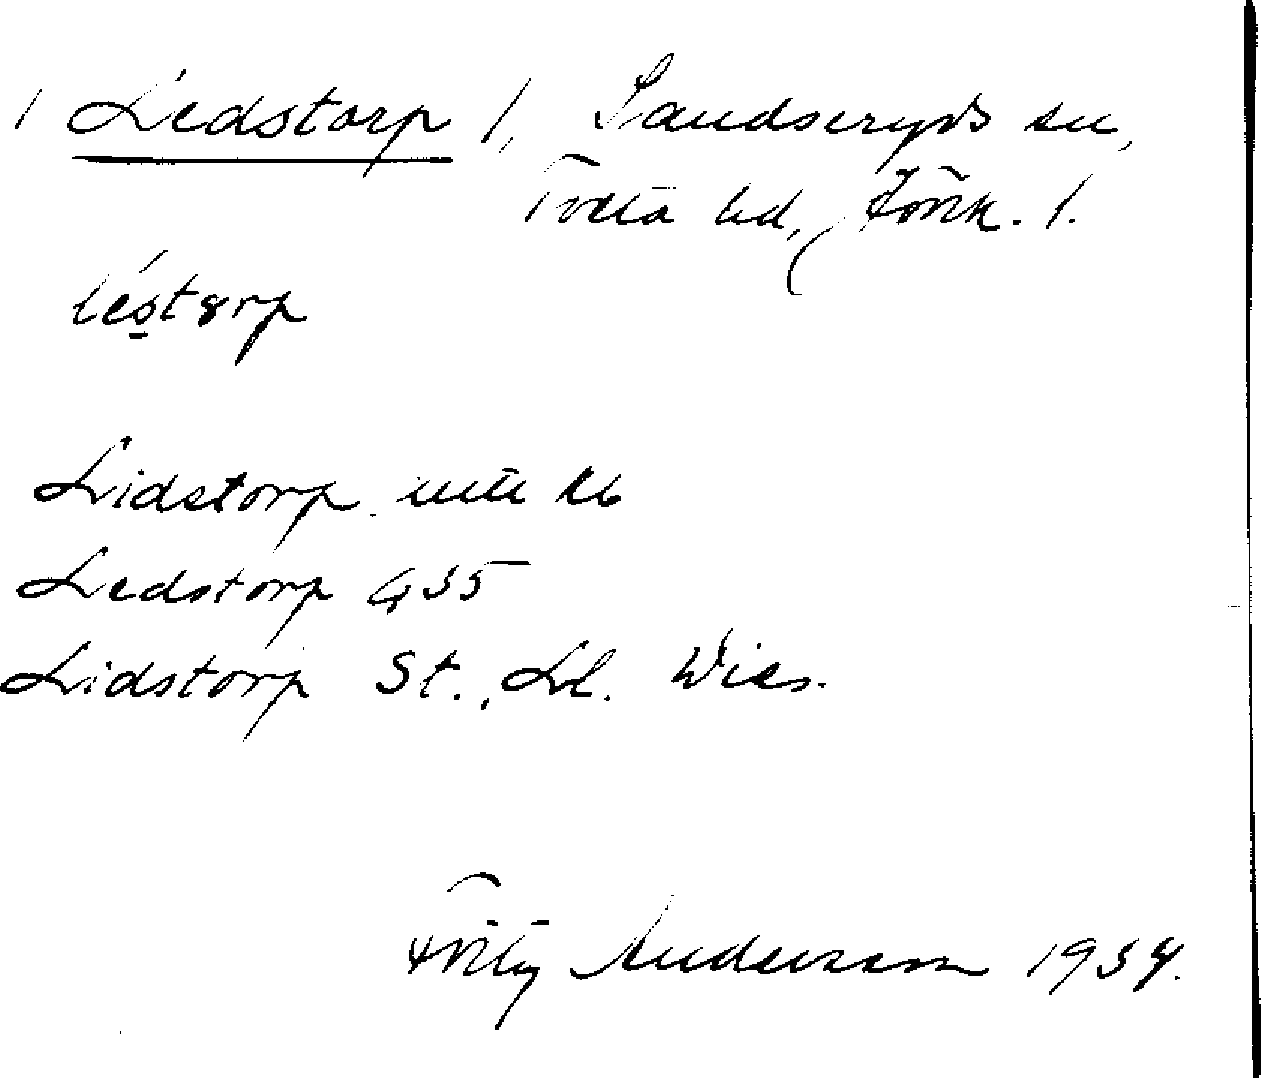 / Ledstorp /, Sandseryds sn,
Tveta hd, Jönk. l.
léstorp
Lidstorp
Ledstorp G 35
Lidstorp St., Ll. Wies.
Fritz Anderson 1934.